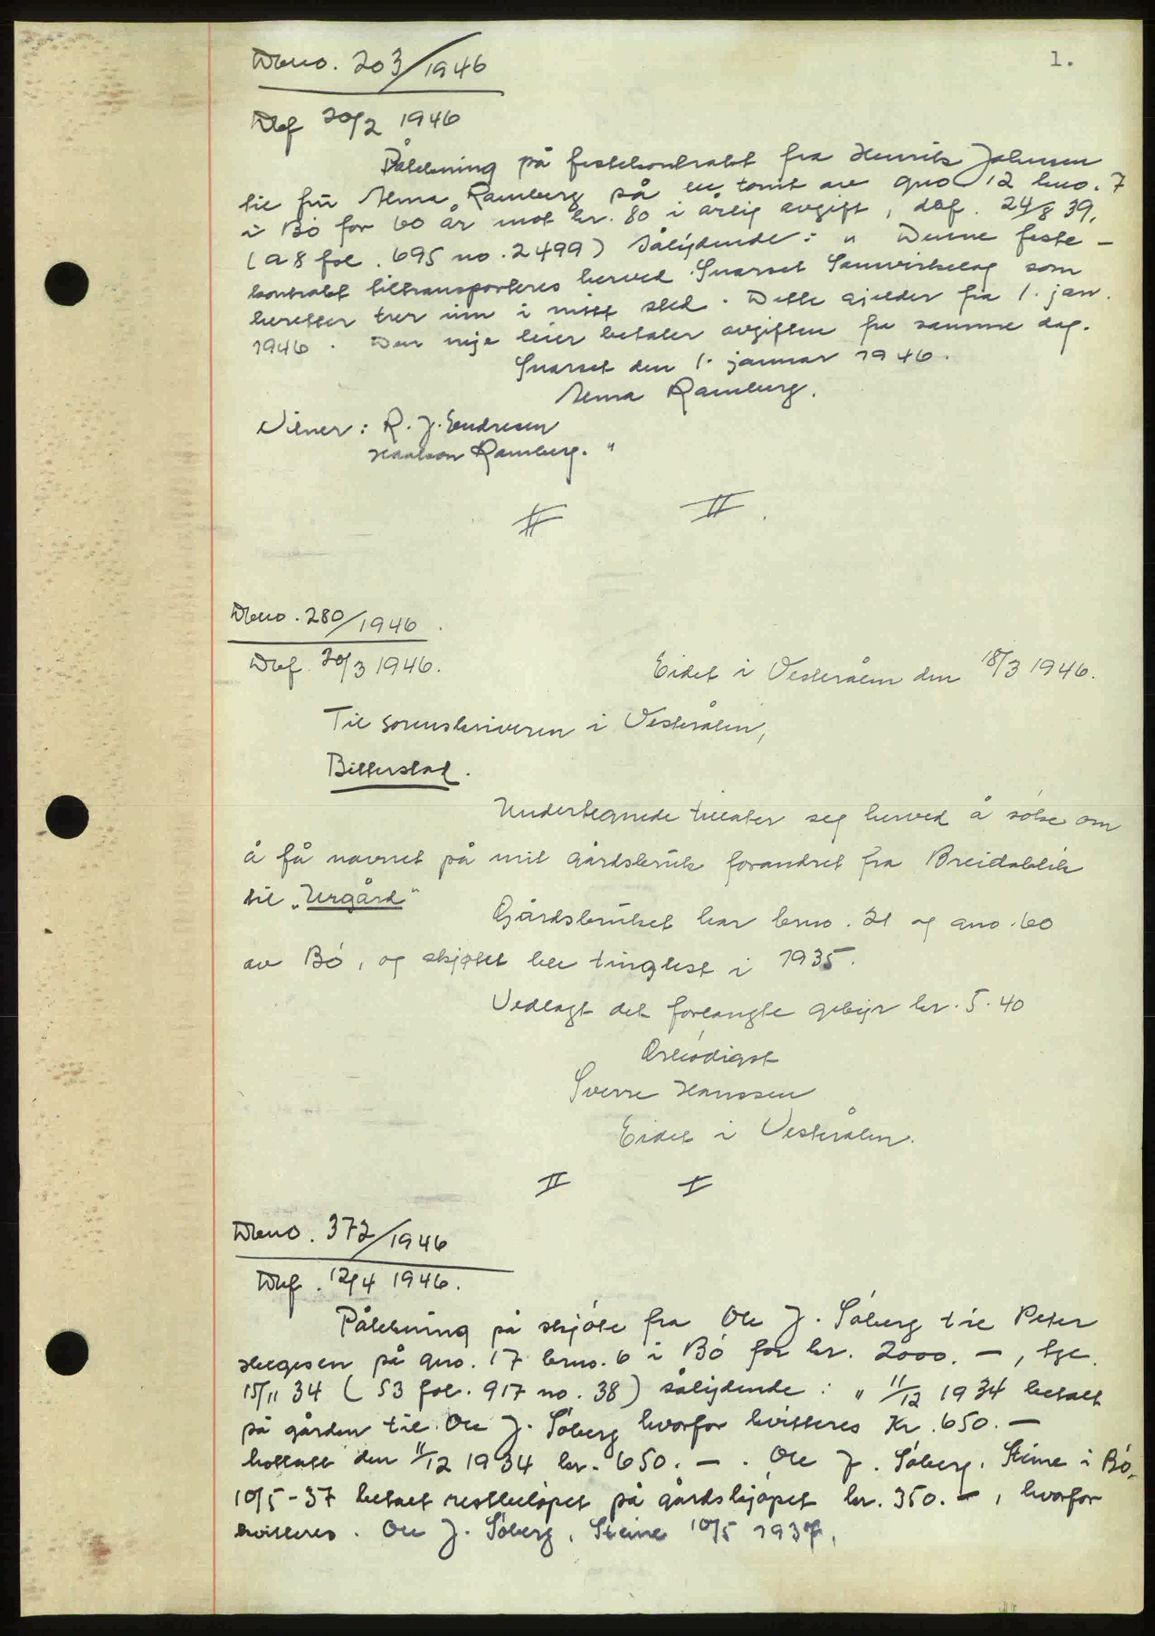 1.
Dbno. 203/1946
Dbf 20/2 1946
Påtekning på festekontrakt fra Henrik Johnsen
til frú Alma Ramberg på en tomt av gno 12 bno. 7
i Bó for 60 år mot kr. 80 i årlig avgift, dbf. 24/8 39,
(a 8 fol. 695 no. 2499) sålýdende: " Denne feste-
kontrakt tiltransporteres herved Guarset Samvirkelag som
heretter trer inn i mitt sted. Dette gjelder fra 1. jan.
1946. Den nye leier betaler avgiften fra samme dag.
Guarset den 1. januar 1946.
Alma Ramberg.
Vitner: R. J. Endresen
Haakon Ramberg. "
Dbno. 280/1946.
Dbf 20/3 1946.
Eidet i Vesterålen den 18/3 1946.
Til sorenskriveren i Vesterålen,
Bitterstad.
Undertegnede tillater seg herved å sóke om
å få navnet på mit gårdsbrúk forandret fra Breidablik
til „Urgård"
Gårdsbrúket har brno. 21 og gno. 60
av Bó, og skjótet ble tinglest i 1935.
Vedlagt det forlangte gebýr kr. 5.40
Ærbódigst
Sverre Hanssen
Eidet i Vesterålen.
Dbno. 372/1946
Dbf. 12/4 1946.
Påtekning på skjóte fra Ole J. Sóberg til Peter
Helgesen på gno. 17 brno. 6 i Bó for kr. 2000.-, tgl.
15/11 34 (53 fol. 917 no. 38) sålýdende: " 11/12 1934 betalt
på gården til Ole J. Sóberg hvorfor kvitteres Kr. 650.-
mottatt den 11/12 1934 kr. 650.-. Ole J. Sóberg. Steine i Bó.
10/5-37 betalt restbelópet på gårdskjópet kr. 350.-, hvorfor
kvitteres. Ole J. Sóberg, Steine 10/5 1937.